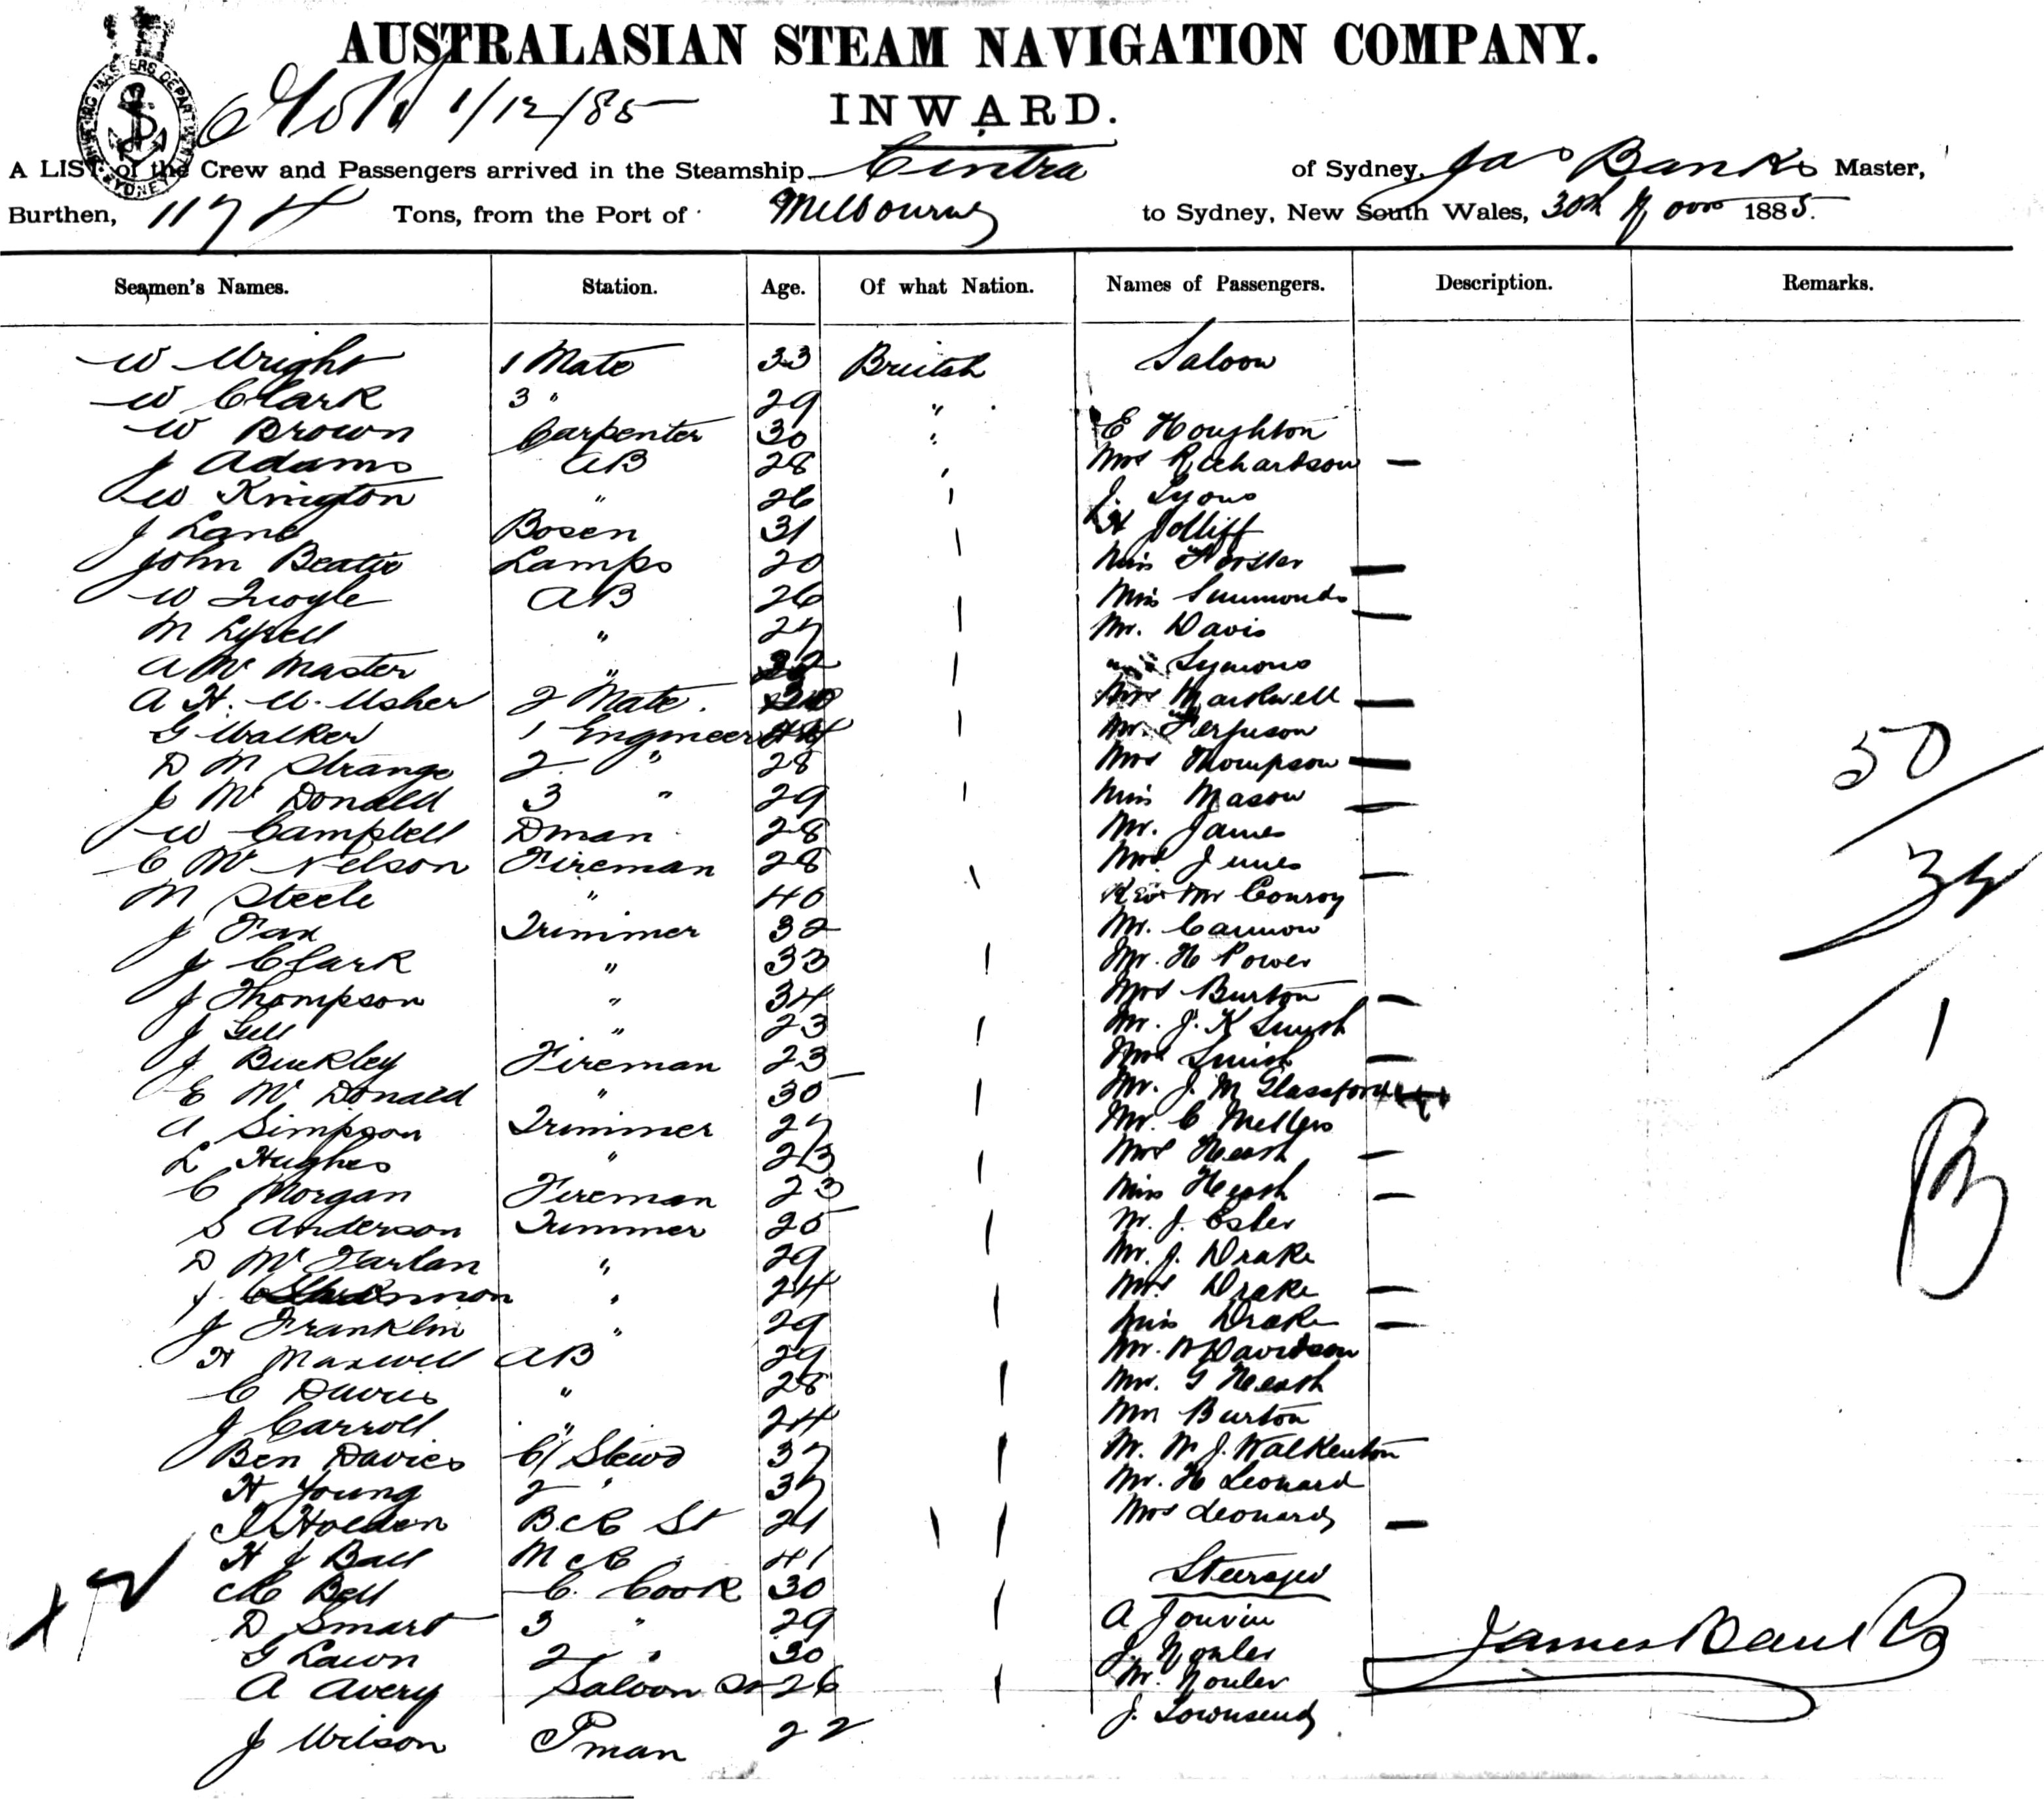 AUSTRALASIAN STEAM NAVIGATION COMPANY.
SHIPPING MASTERS DEPARTMENT SYDNEY
1/12/85
INWARD.
A LIST of the Crew and Passengers arrived in the Steamship Cintra of Sydney, Jas Banks Master,
Burthen, 1174 Tons, from the Port of Melbourne to Sydney, New South Wales, 30th Novr 1885.
Seamen's Names. Station. Age. Of what Nation. Names of Passengers. Description. Remarks.
W Wright 1 Mate 33 British Saloon
W Clark 3 " 29 "
W Brown Carpenter 30 " E Houghton
J Adams AB 28 Mrs Richardson —
W Kington " 26 J. Lyons
J Lane Bosen 31 Jolliff
John Beatie Lamps 20 Miss Forster —
W Quoyle AB 26 Miss Simmonds —
M Lyzell " 27 Mr. Davis
A Mc Master " Symons
A H. W. Usher 2 Mate. Mrs Markwell —
G Walker 1 Engineer 44 Mr. Ferguson
D M Strange 2 " 28 Mrs Thompson —
J Mc Donald 3 " 29 Miss Mason —
W Campbell Dman 28 Mr. James
C Mc Nelson Fireman 28 Mrs James —
M Steele " 40 Rev Mr Conroy
J Fax Trimmer 32 Mr. Cannow
J Clark " 33 Mr. H Power
J Thompson " 34 Mrs Burton —
J Gill " 23 Mr. J. K Smith
J Buckley Fireman 23 Mrs Smith —
E Mc Donald " 30 Mr. J. M Glassford
A Simpson Trimmer 27 Mr. C Mellers
L Hughes " 23 Mrs Heash —
C Morgan Fireman 23 Miss Heash —
S Anderson Trimmer 25 Mr. J. Osler
D Mc Farlan " 29 Mr. J. Drake
J " 24 Mrs Drake —
J Franklin " 29 Miss Drake —
H Maxwell AB 29 Mr. Davidson
C Davies " 28 Mr. G Heash
J Carroll " 24 Mr Burton
Ben Davies C/ Stewd 37 Mr. W. J. Walkenton
H Young 2 " 37 Mr. H Leonard
Holden B.C.R St 21 Mrs Leonard —
H J Ball M C R 41 Steerage
Bell C. Cook 30
D Smart 3 " 29 A Jouvin
G Lawn 2 " 30 J. Nouler
A Avery Saloon St 26 Mr. Nouler
J. Townsend
J Wilson Pman 22
50
34
1
James Banks